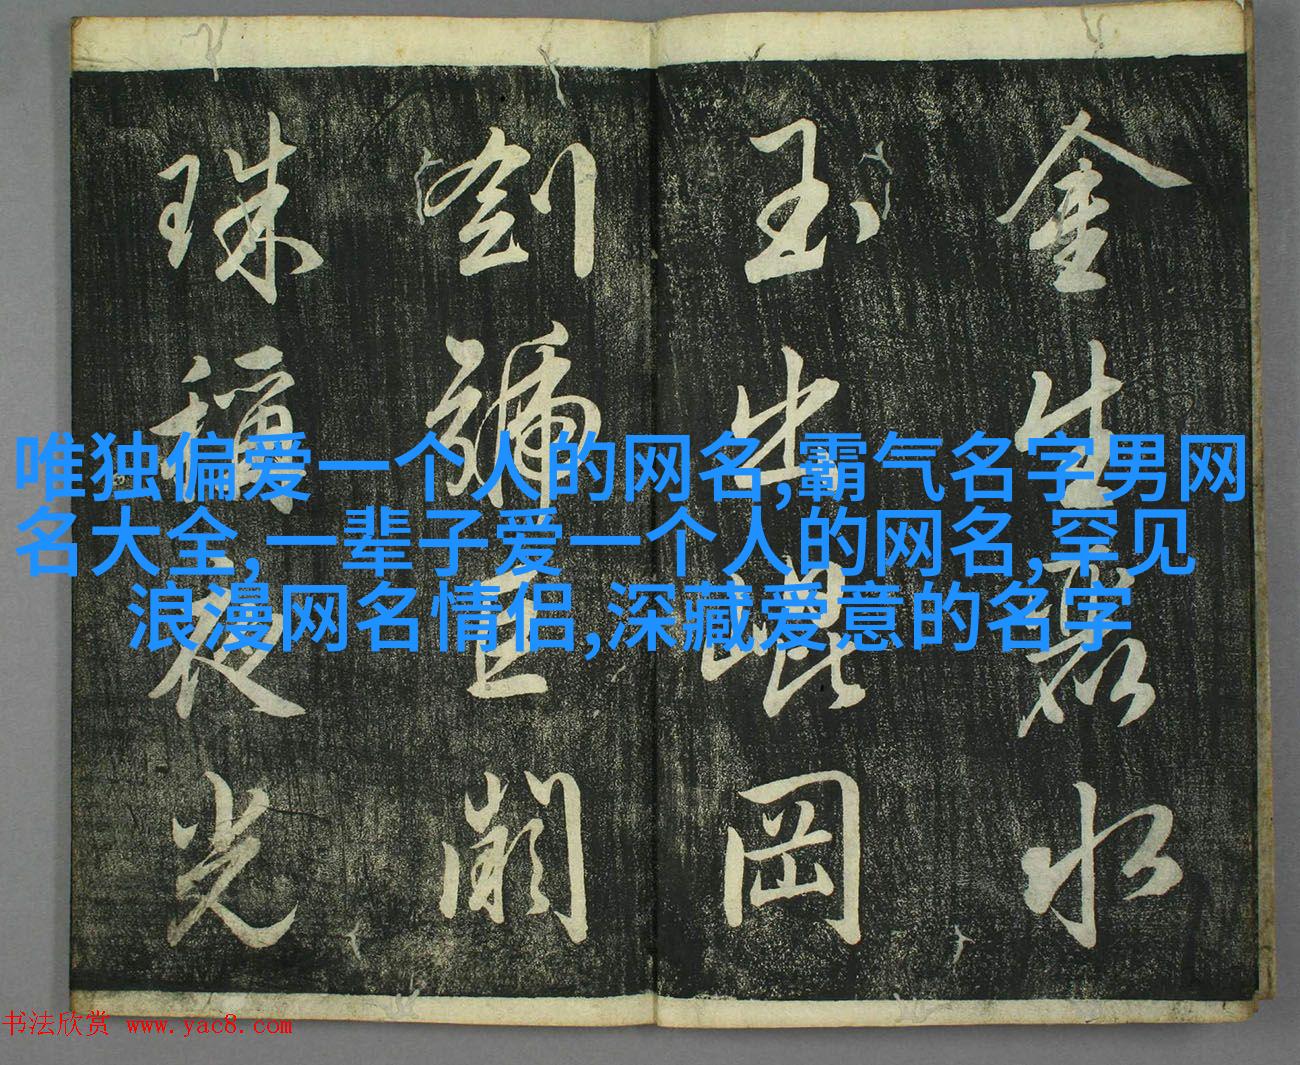 金生麗水
玉出崐岡
劍號巨闕
珠稱夜光
唯独偏爱一个人的网名,霸气名字男网
名大全,一辈子爱一个人的网名,罕见
浪漫网名情侣,深藏爱意的名字
书法欣赏 www.yac8.com